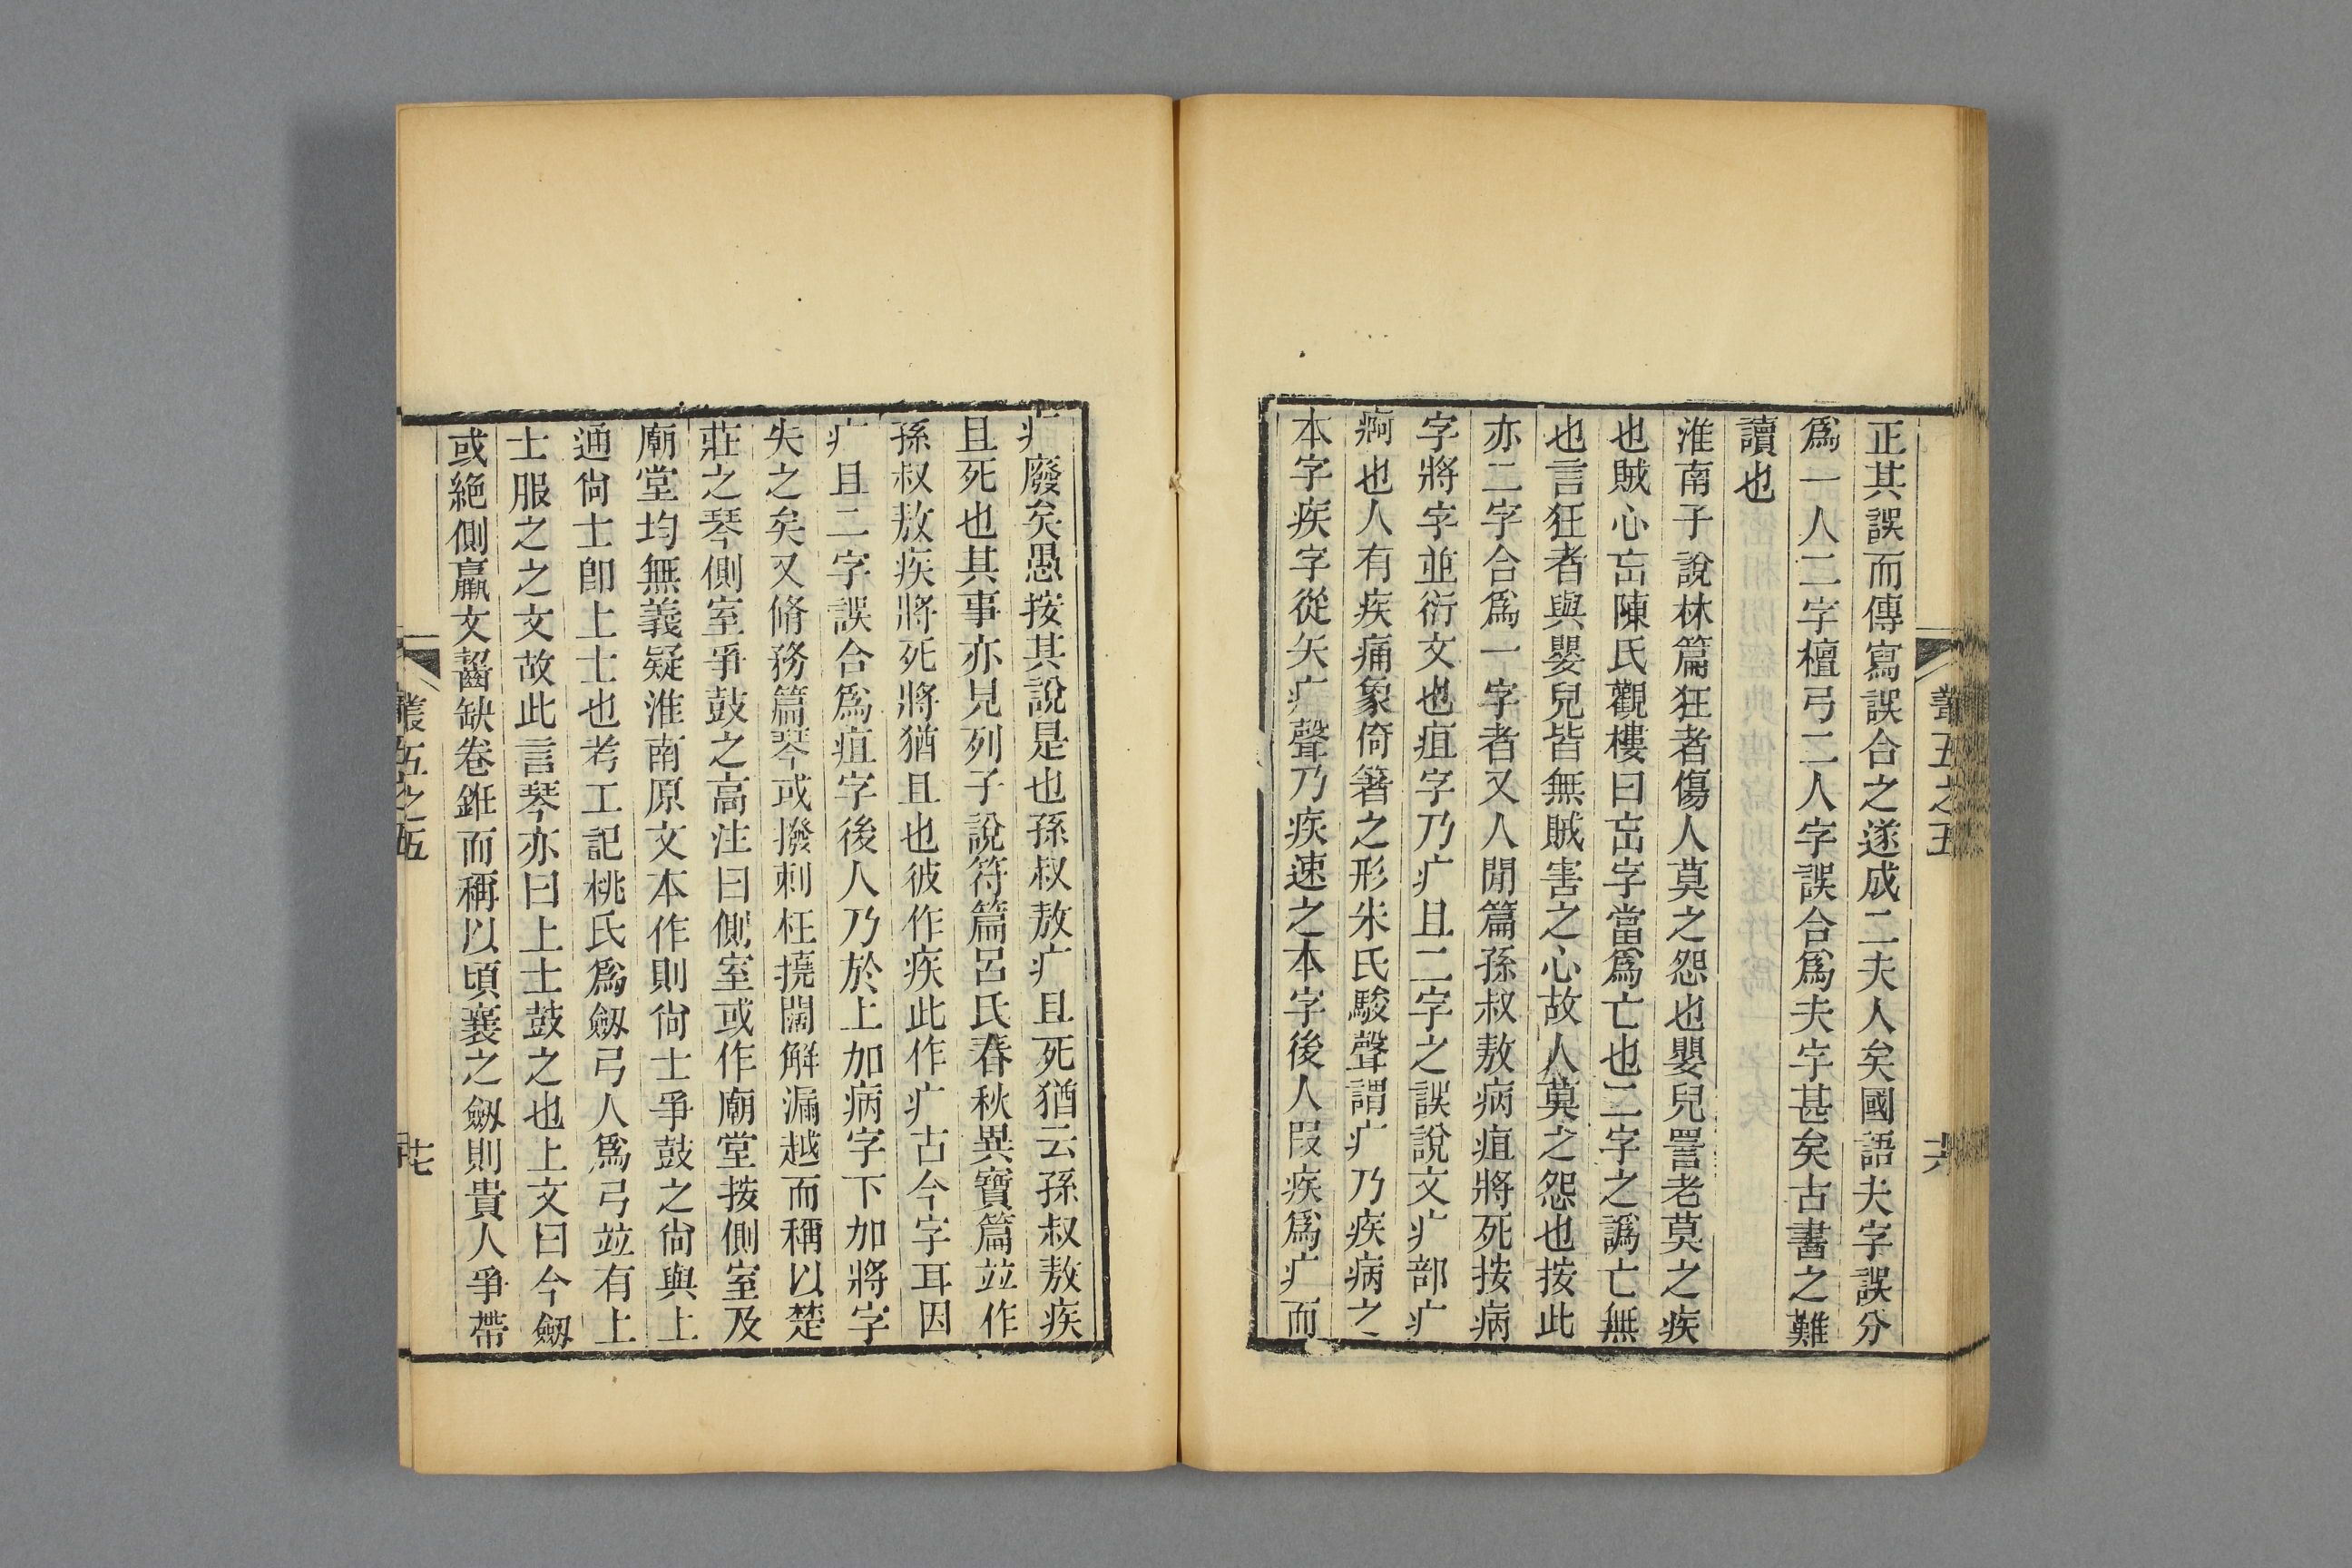 正其誤而傳寫誤合之遂成二夫人矣國語夫字誤分
爲一人二字檀弓二人字誤合爲夫字甚矣古書之難
讀也
淮南子說林篇狂者傷人莫之怨也嬰兒詈老莫之疾
也賊心𠅘陳氏觀樓曰𠅘字當爲亡也二字之譌亡無
也言狂者與嬰兒皆無賊害之心故人莫之怨也按此
亦二字合爲一字者又人閒篇孫叔敖病疽將死按病
字將字並衍文也疽字乃疒且二字之誤說文疒部疒
痾也人有疾痛象倚箸之形朱氏駿聲謂疒乃疾病之
本字疾字從矢疒聲乃疾速之本字後人叚疾爲疒而
疒廢矣愚按其說是也孫叔敖疒且死猶云孫叔敖疾
且死也其事亦見列子說符篇呂氏春秋異寶篇竝作
孫叔敖疾將死將猶且也彼作疾此作疒古今字耳因
疒且二字誤合爲疽字後人乃於上加病字下加將字
失之矣又脩務篇琴或撥剌枉撓闊解漏越而稱以楚
莊之琴側室爭鼓之高注曰側室或作廟堂按側室及
廟堂均無義疑淮南原文本作則尙士爭鼓之尙與上
通尙士卽上士也考工記桃氏爲劒弓人爲弓竝有上
士服之之文故此言琴亦曰上士鼓之也上文曰今劒
或絶側羸文齧缺卷銋而稱以頃襄之劒則貴人爭帶
叢五之五
十六
叢五之五
十七